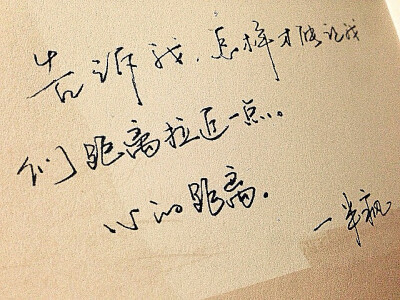 告诉我,怎样才能让我
们距离拉近一点。
心的距离。
一半疯